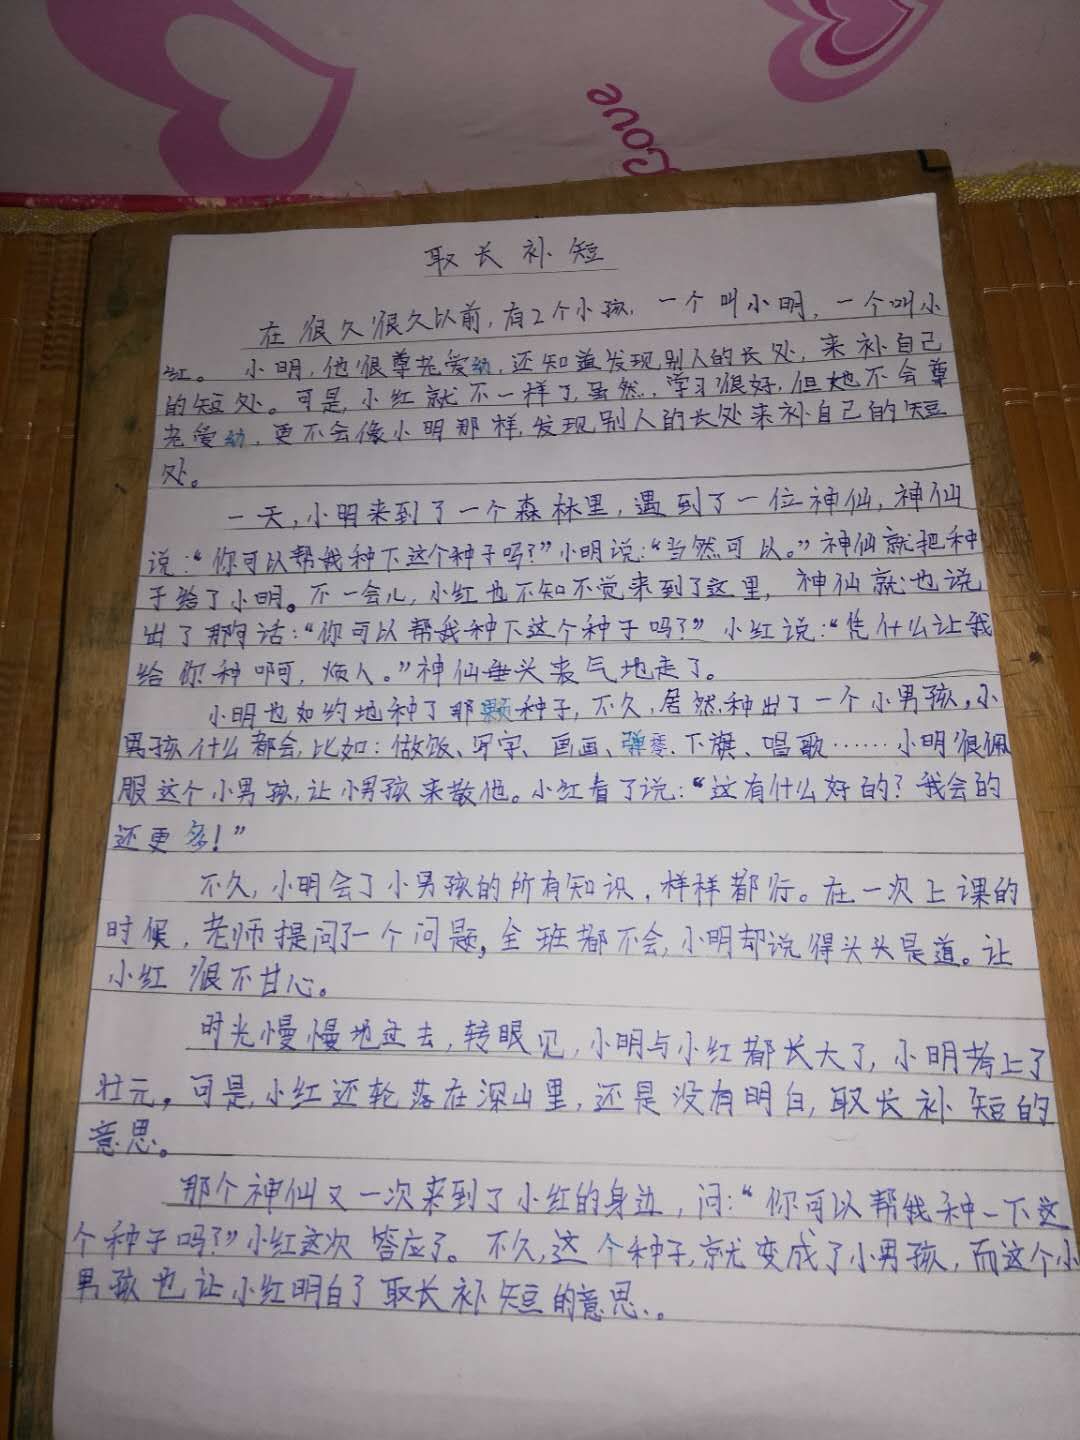 Love
取长补短
在很久很久以前,有2个小孩,一个叫小明,一个叫小
红。小明,他很尊老爱幼,还知道发现别人的长处,来补自己
的短处。可是,小红就不一样了,虽然,学习很好,但她不会尊
老爱幼,更不会像小明那样,发现别人的长处来补自己的短
处。
一天,小明来到了一个森林里,遇到了一位神仙,神仙
说:“你可以帮我种下这个种子吗?”小明说:“当然可以。”神仙就把种
子给了小明。不一会儿,小红也不知不觉来到了这里,神仙就也说
出了那句话:“你可以帮我种下这个种子吗?”小红说:“凭什么让我
给你种啊,烦人。”神仙垂头丧气地走了。
小明也如约地种了那颗种子,不久,居然种出了一个小男孩。小
男孩什么都会,比如:做饭、写字、画画、弹琴、下旗、唱歌……小明很佩
服这个小男孩,让小男孩来教他。小红看了说:“这有什么好的?我会的
还更多!”
不久,小明会了小男孩的所有知识,样样都行。在一次上课的
时候,老师提问了一个问题,全班都不会,小明却说得头头是道。让
小红很不甘心。
时光慢慢地过去,转眼见,小明与小红都长大了,小明考上了
壮元。可是,小红还轮落在深山里,还是没有明白,取长补短的
意思。
那个神仙又一次来到了小红的身边,问:“你可以帮我种一下这
个种子吗?”小红这次答应了。不久,这个种子,就变成了小男孩,而这个小
男孩也让小红明白了取长补短的意思.。